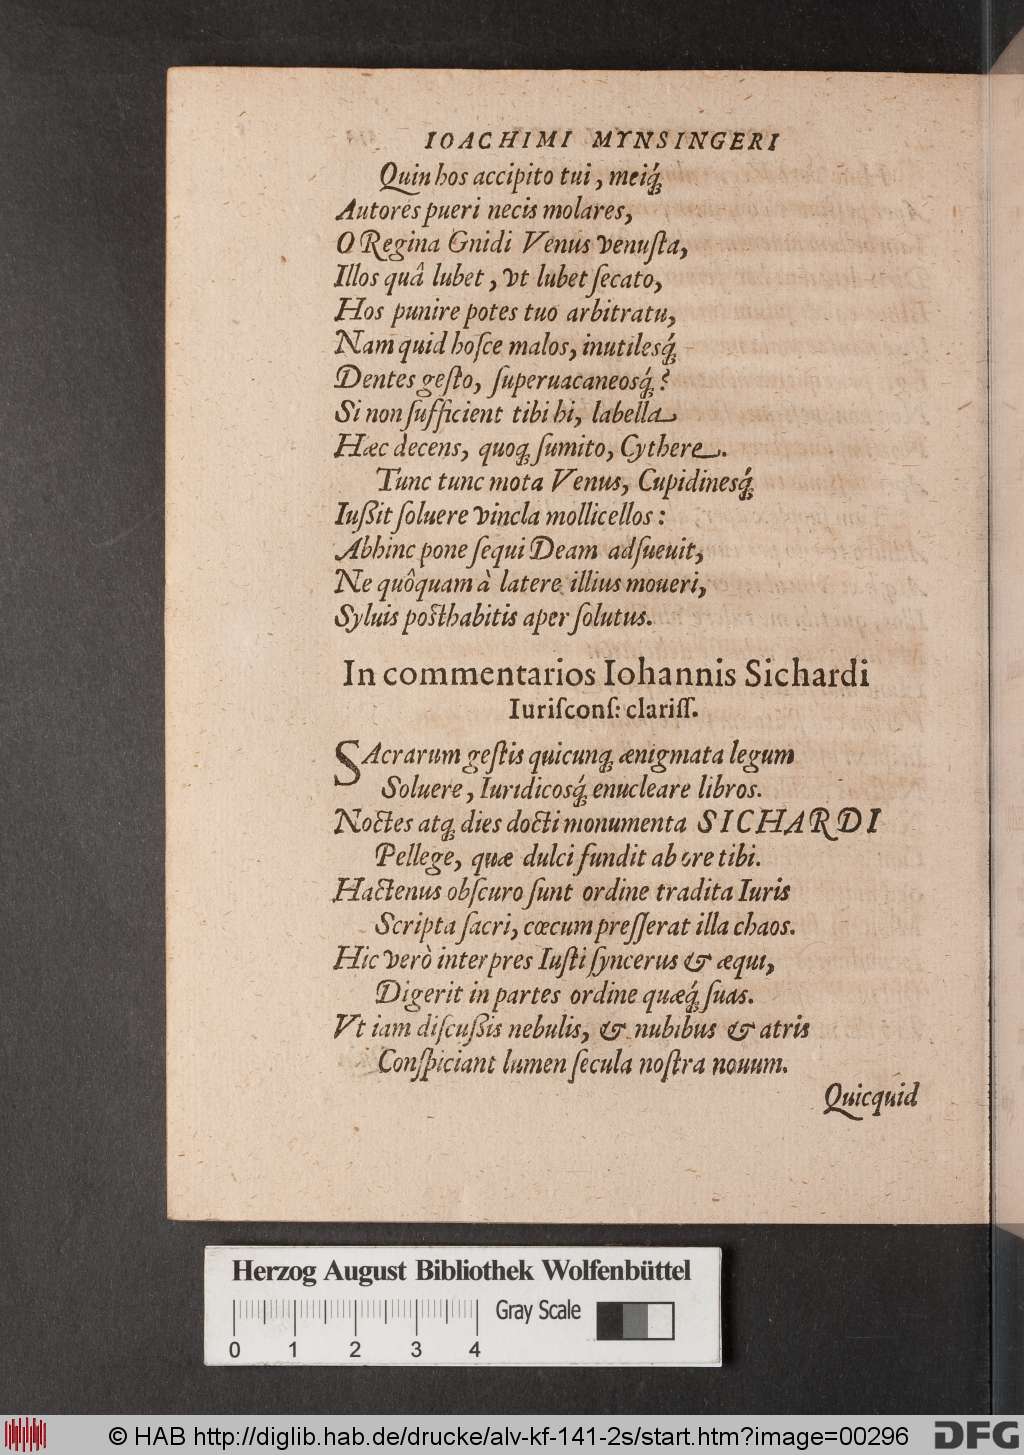 IOACHIMI MYNSINGERI
Quin hos accipito tui, meiq́;
Autores pueri necis molares,
O Regina Gnidi Venus venuſta,
Illos quâ lubet, vt lubet ſecato,
Hos punire potes tuo arbitratu,
Nam quid hoſce malos, inutilesq́;
Dentes geſto, ſuperuacaneosq́;?
Si non ſufficient tibi hi, labella
Hæc decens, quoq; ſumito, Cythere.
Tunc tunc mota Venus, Cupidinesq́;
Iußit ſoluere vincla mollicellos:
Abhinc pone ſequi Deam adſueuit,
Ne quôquam à latere illius moueri,
Syluis poſthabitis aper ſolutus.
In commentarios Iohannis Sichardi
Iuriſconſ: clariſſ.
SAcrarum geſtis quicunq; ænigmata legum
Soluere, Iuridicosq́; enucleare libros.
Noctes atq; dies docti monumenta SICHARDI
Pellege, quæ dulci fundit ab ore tibi.
Hactenus obſcuro ſunt ordine tradita Iuris
Scripta ſacri, cœcum preſſerat illa chaos.
Hic verò interpres Iuſti ſyncerus & æqui,
Digerit in partes ordine quæq́; ſuas.
Vt iam diſcußis nebulis, & nubibus & atris
Conſpiciant lumen ſecula noſtra nouum.
Quicquid
Herzog August Bibliothek Wolfenbüttel
Gray Scale
0 1 2 3 4
© HAB http://diglib.hab.de/drucke/alv-kf-141-2s/start.htm?image=00296
DFG